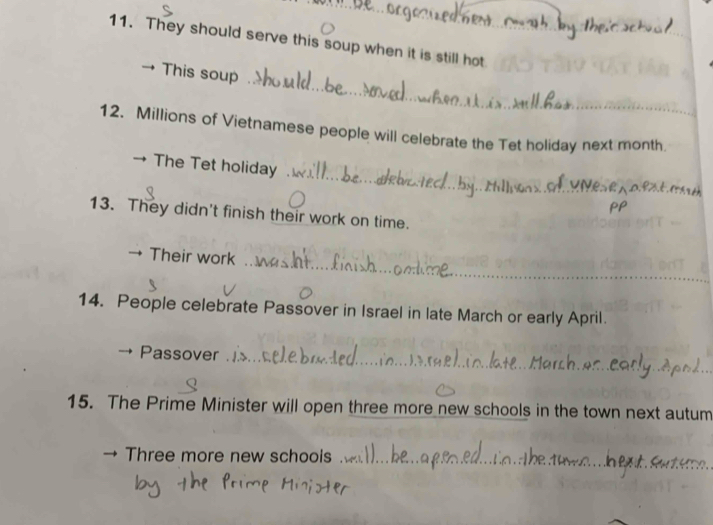 be organized next month by their school
S O
11. They should serve this soup when it is still hot
→ This soup should be served when it is still hot
12. Millions of Vietnamese people will celebrate the Tet holiday next month.
→ The Tet holiday will be celebrated by Millions of VNese next month
S O PP
13. They didn't finish their work on time.
→ Their work wasn't finish on time
S V O
14. People celebrate Passover in Israel in late March or early April.
→ Passover is celebrated in Israel in late March or early April
S O
15. The Prime Minister will open three more new schools in the town next autum
→ Three more new schools will be opened in the town next autumn
by the Prime Minister